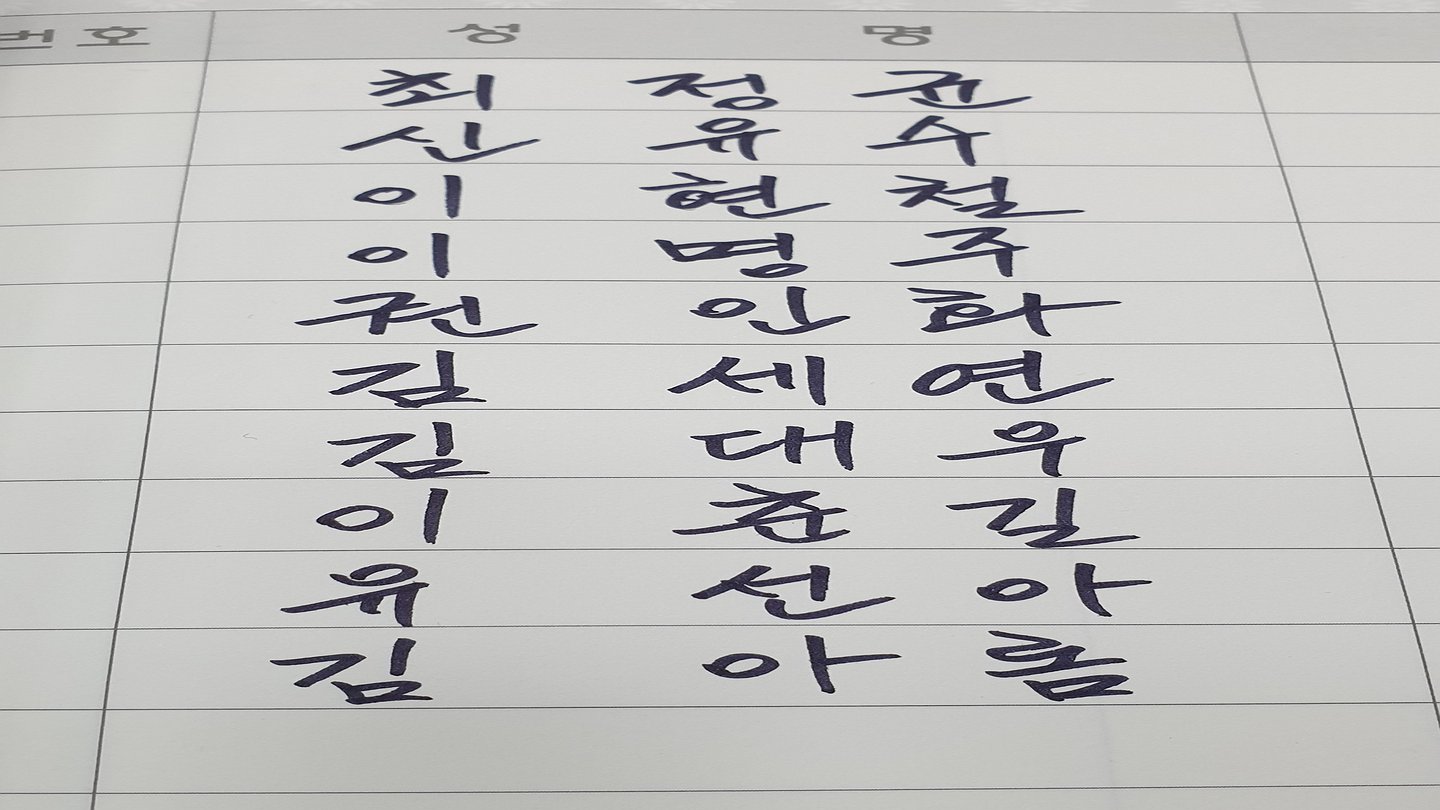 번호 성 명
최 정 권
신 유 수
이 현 철
이 명 주
권 인 화
김 세 연
김 대 우
이 춘 길
유 선 아
김 아 름